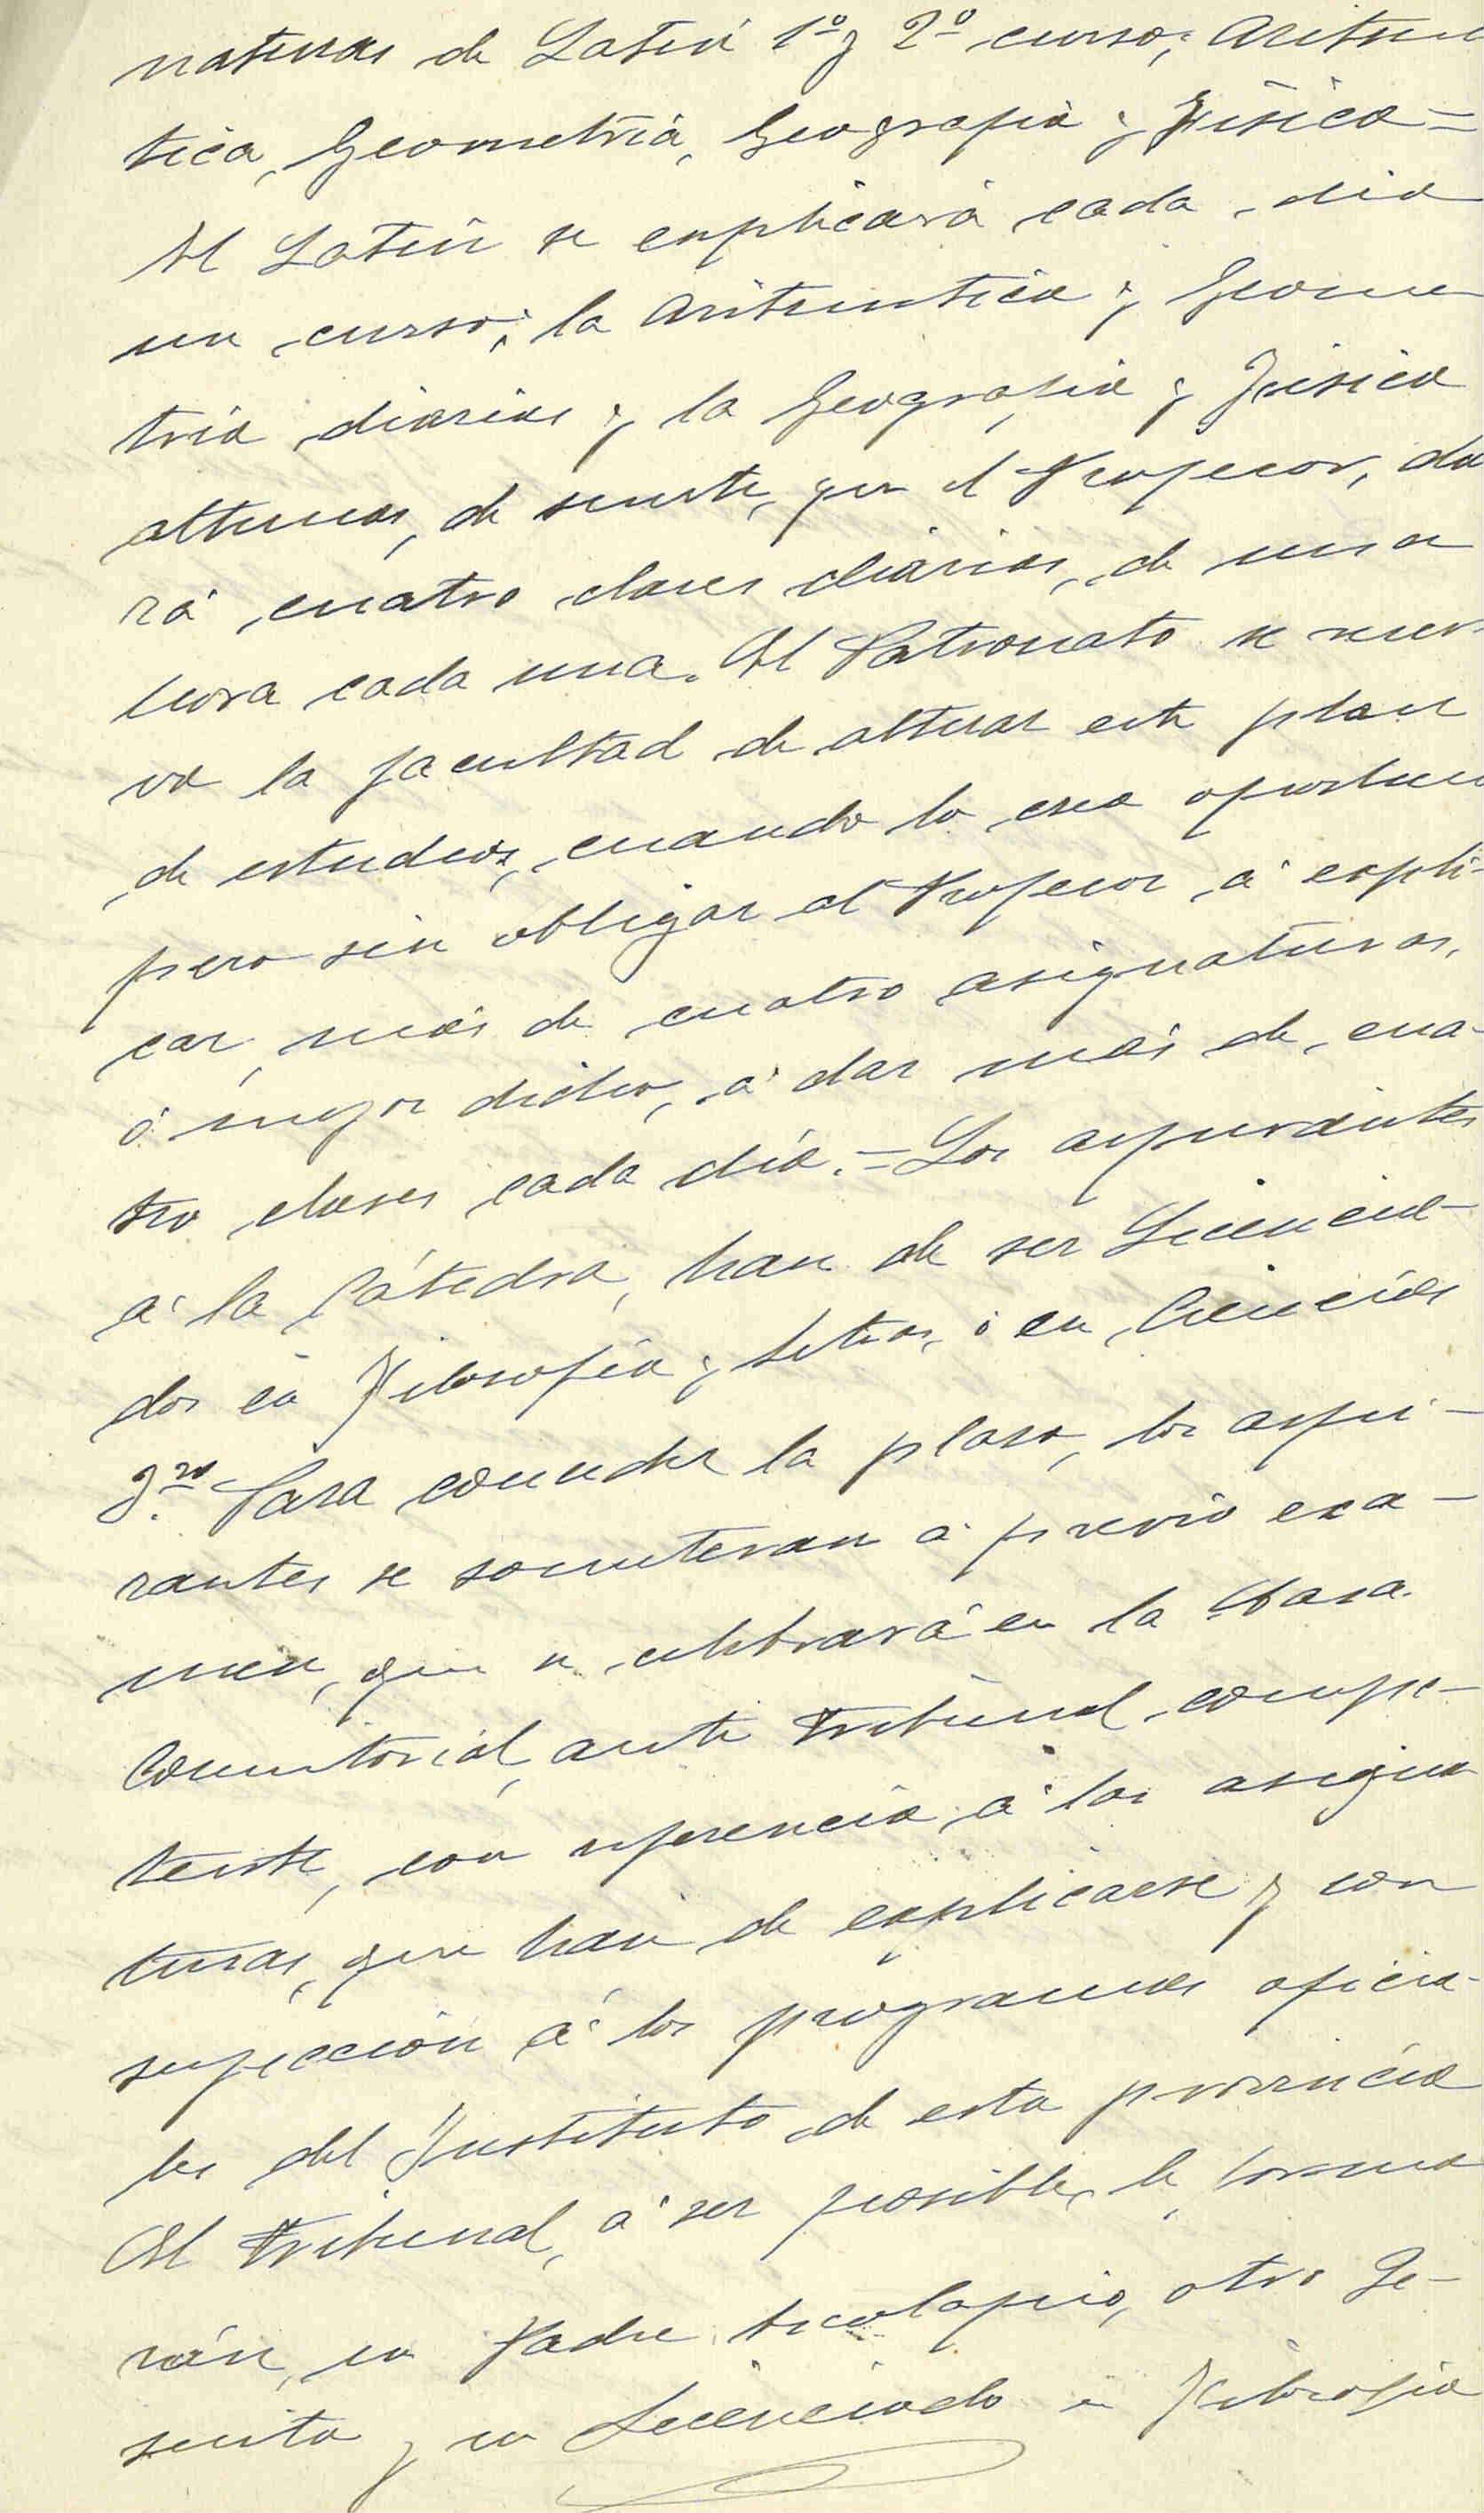 naturas de Latin 1º y 2º curso; Aritme
tica, Geometria, Geografia y Fisica =
El Latin se explicará cada dia
un curso; la Aritmetica y Geome
tria diarias y la Geografia y Fisica
alternas, de suerte, que el Profesor, da
rá cuatro clases diarias, de una
hora cada una. Al Patronato se reser-
va la facultad de alterar este plan
de estudios, cuando lo crea oportuno
pero sin obligar al Profesor á expli-
car, más de cuatro asignaturas,
ó mejor dicho, á dar más de cua-
tro clases cada día. = Los aspirantes
á la Cátedra, han de ser Licencia-
dos en Filosofía y Letras, ó en Ciencias
3ro. Para conceder la plaza, los aspi-
rantes se someteran á previo exa-
men, que se celebrará en la Casa
Consistorial, ante Tribunal compe-
tente, con referencia á las asigna
turas, que han de explicarse y con
sujeccion á los programas oficia-
les del Instituto de esta provincia
El Tribunal, á ser posible, le forma
rán, un Padre Escolapio, otro Je-
suita y un Licenciado en Filosofia